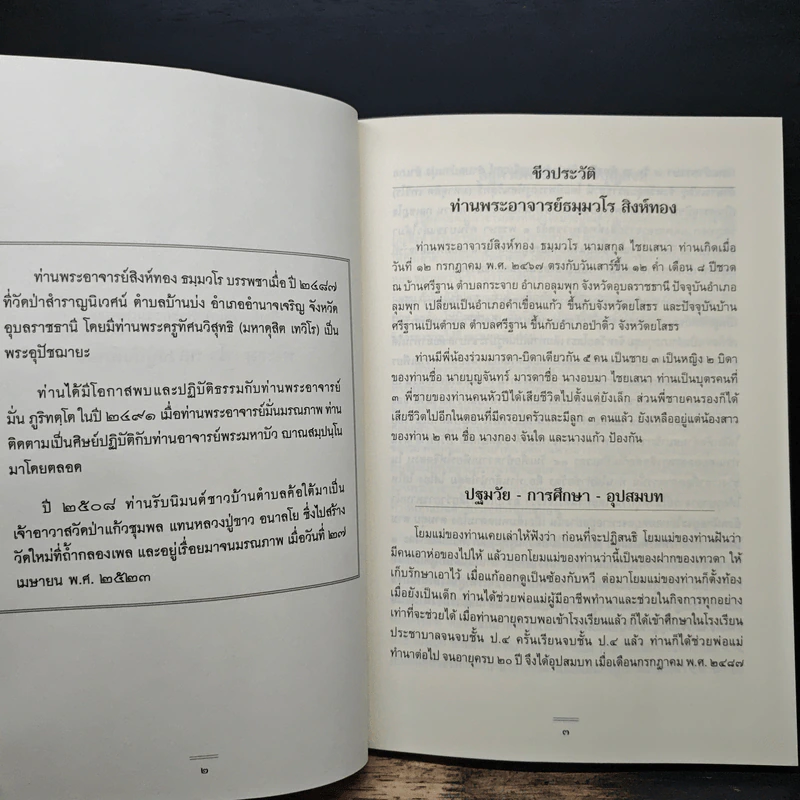 ท่านพระอาจารย์สิงห์ทอง ธมฺมวโร บรรพชาเมื่อ ปี ๒๔๘๗
ที่วัดป่าสำราญนิเวศน์ ตำบลบ้านบ่ง อำเภออำนาจเจริญ จังหวัด
อุบลราชธานี โดยมีท่านพระครูทัศนวิสุทธิ (มหาดุสิต เทวิโร) เป็น
พระอุปัชฌายะ
ท่านได้มีโอกาสพบและปฏิบัติธรรมกับท่านพระอาจารย์
มั่น ภูริทตฺโต ในปี ๒๔๙๑ เมื่อท่านพระอาจารย์มั่นมรณภาพ ท่าน
ติดตามเป็นศิษย์ปฏิบัติกับท่านอาจารย์พระมหาบัว ญาณสมฺปนฺโน
มาโดยตลอด
ปี ๒๕๐๘ ท่านรับนิมนต์ชาวบ้านตำบลค้อใต้มาเป็น
เจ้าอาวาสวัดป่าแก้วชุมพล แทนหลวงปู่ขาว อนาลโย ซึ่งไปสร้าง
วัดใหม่ที่ถ้ำกลองเพล และอยู่เรื่อยมาจนมรณภาพ เมื่อวันที่ ๒๗
เมษายน พ.ศ. ๒๕๒๓
๒
ชีวประวัติ
ท่านพระอาจารย์ธมฺมวโร สิงห์ทอง
ท่านพระอาจารย์สิงห์ทอง ธมฺมวโร นามสกุล ไชยเสนา ท่านเกิดเมื่อ
วันที่ ๑๒ กรกฎาคม พ.ศ. ๒๔๖๗ ตรงกับวันเสาร์ขึ้น ๑๒ ค่ำ เดือน ๘ ปีชวด
ณ บ้านศรีฐาน ตำบลกระจาย อำเภอลุมพุก จังหวัดอุบลราชธานี ปัจจุบันอำเภอ
ลุมพุก เปลี่ยนเป็นอำเภอคำเขื่อนแก้ว ขึ้นกับจังหวัดยโสธร และปัจจุบันบ้าน
ศรีฐานเป็นตำบล ตำบลศรีฐาน ขึ้นกับอำเภอป่าติ้ว จังหวัดยโสธร
ท่านมีพี่น้องร่วมมารดา-บิดาเดียวกัน ๕ คน เป็นชาย ๓ เป็นหญิง ๒ บิดา
ของท่านชื่อ นายบุญจันทร์ มารดาชื่อ นางอบมา ไชยเสนา ท่านเป็นบุตรคนที่
๓ พี่ชายของท่านคนหัวปีได้เสียชีวิตไปตั้งแต่ยังเล็ก ส่วนพี่ชายคนรองก็ได้
เสียชีวิตไปอีกในตอนที่มีครอบครัวและมีลูก ๓ คนแล้ว ยังเหลืออยู่แต่น้องสาว
ของท่าน ๒ คน ชื่อ นางกอง จันใด และนางแก้ว ป้องกัน
ปฐมวัย - การศึกษา - อุปสมบท
โยมแม่ของท่านเคยเล่าให้ฟังว่า ก่อนที่จะปฏิสนธิ โยมแม่ของท่านฝันว่า
มีคนเอาห่อของไปให้ แล้วบอกโยมแม่ของท่านว่านี้เป็นของฝากของเทวดา ให้
เก็บรักษาเอาไว้ เมื่อแก้ออกดูเป็นช้องกับหวี ต่อมาโยมแม่ของท่านก็ตั้งท้อง
เมื่อยังเป็นเด็ก ท่านได้ช่วยพ่อแม่ผู้มีอาชีพทำนาและช่วยในกิจการทุกอย่าง
เท่าที่จะช่วยได้ เมื่อท่านอายุครบพอเข้าโรงเรียนแล้ว ก็ได้เข้าศึกษาในโรงเรียน
ประชาบาลจนจบชั้น ป.๔ ครั้นเรียนจบชั้น ป.๔ แล้ว ท่านก็ได้ช่วยพ่อแม่
ทำนาต่อไป จนอายุครบ ๒๐ ปี จึงได้อุปสมบท เมื่อเดือนกรกฎาคม พ.ศ. ๒๔๘๗
๓